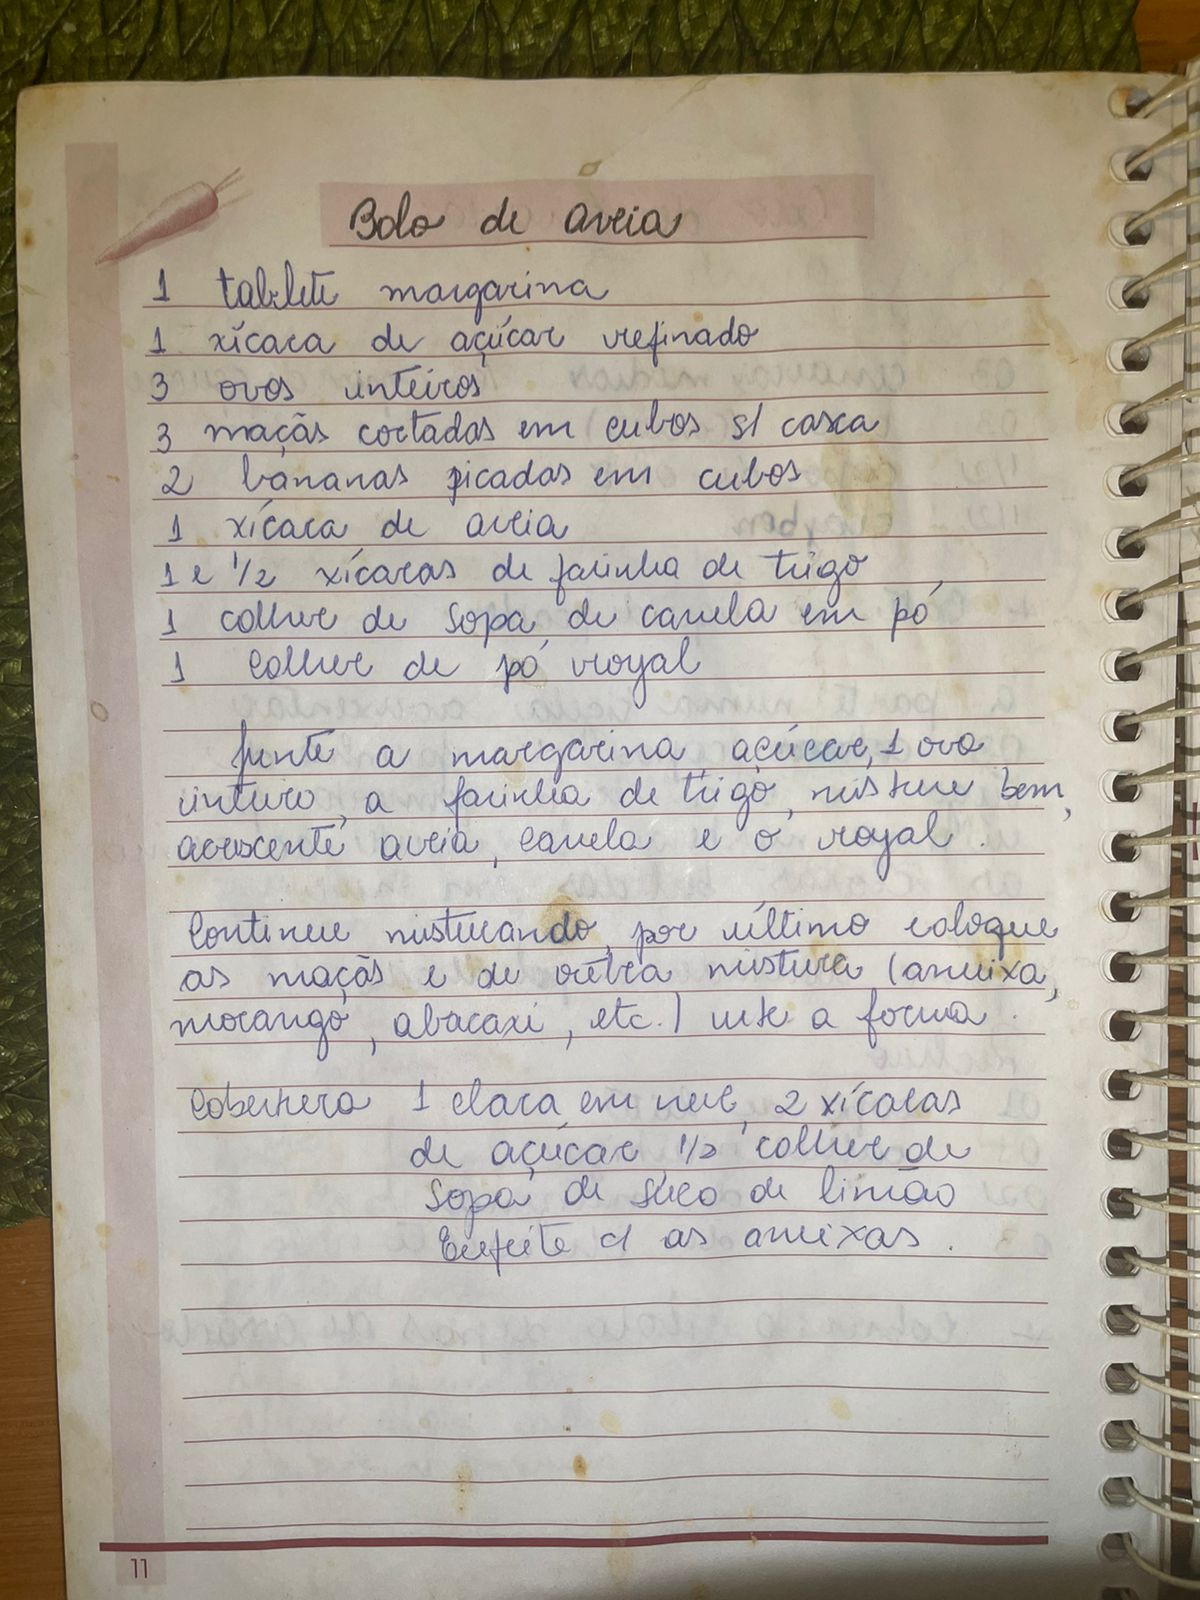 Bolo de aveia
1 tablete margarina
1 xícara de açúcar refinado
3 ovos inteiros
3 maçãs cortadas em cubos s/ casca
2 bananas picadas em cubos
1 xícara de aveia
1 e 1/2 xícaras de farinha de trigo
1 colher de sopa de canela em pó
1 colher de pó royal
Junte a margarina, açúcar, 1 ovo
inteiro, a farinha de trigo, misture bem,
acrescente aveia, canela e o royal.
Continue misturando, por último coloque
as maçãs e de outra mistura (ameixa,
morango, abacaxi, etc.) unte a forma.
Cobertura 1 clara em neve, 2 xícaras
de açúcar, 1/2 colher de
sopa de suco de limão
Enfeite c/ as ameixas.
11